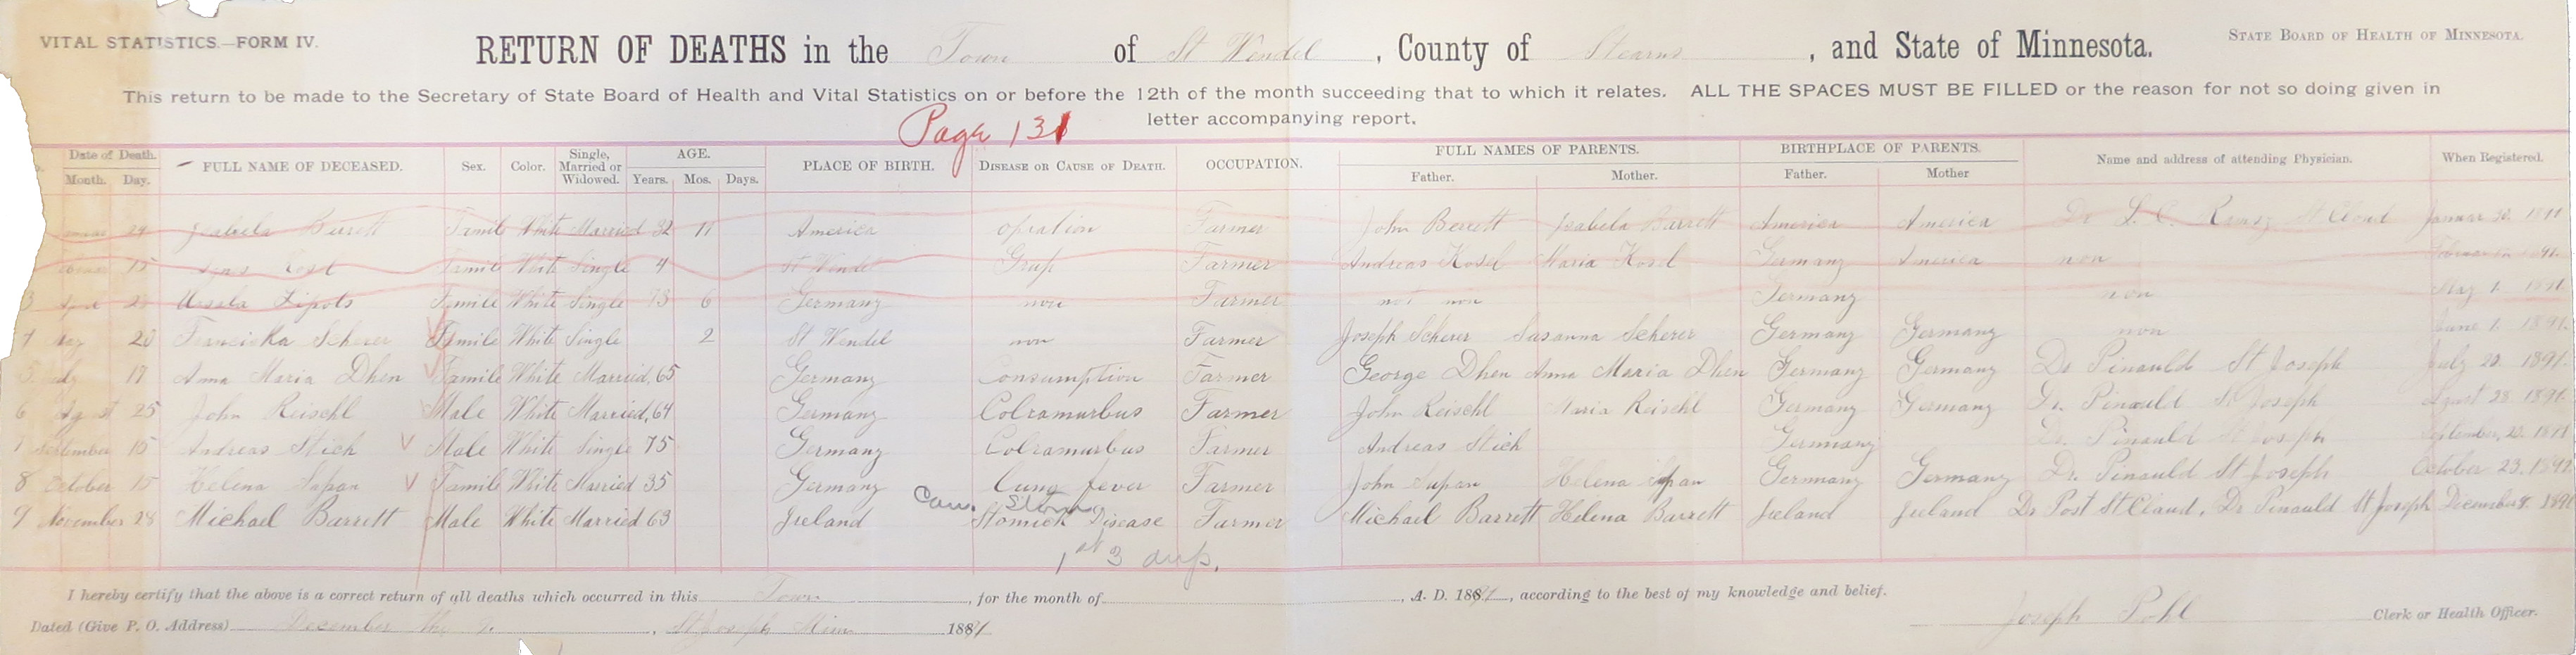 VITAL STATISTICS.—FORM IV.
STATE BOARD OF HEALTH OF MINNESOTA.
RETURN OF DEATHS in the Town of St Wendel, County of Stearns, and State of Minnesota.
This return to be made to the Secretary of State Board of Health and Vital Statistics on or before the 12th of the month succeeding that to which it relates. ALL THE SPACES MUST BE FILLED or the reason for not so doing given in
letter accompanying report.
Page 131
Date of Death. FULL NAME OF DECEASED. Sex. Color. Single, Married or Widowed. AGE. PLACE OF BIRTH. DISEASE OR CAUSE OF DEATH. OCCUPATION. FULL NAMES OF PARENTS. BIRTHPLACE OF PARENTS. Name and address of attending Physician. When Registered.
Month. Day. Years. Mos. Days. Father. Mother. Father. Mother
Famile White Married 32 11 America opration Farmer John Berett Isabela Barrett America America Dr St Cloud
15 Famile White Single 4 St Wendel Grup Farmer Andreas Kosel Maria Kosel Germany America non
3 Ursula Lipots Famile White Single 73 6 Germany non Farmer not non Germany non May 1. 1891
4 May 20 Franciska Scherer Famile White Single 2 St Wendel non Farmer Joseph Scherer Susanna Scherer Germany Germany non June 1. 1891.
5 July 17 Anna Maria Dhen Famile White Married, 65 Germany Consumption Farmer George Dhen Anna Maria Dhen Germany Germany Dr Pinauld St Joseph July 20. 1891.
6 August 25 John Reischl Male White Married, 64 Germany Colramurbus Farmer John Reischl Maria Reischl Germany Germany Dr. Pinauld St Joseph August 28. 1891.
7 September 15 Andreas Stich Male White Single 75 Germany Colramurbus Farmer Andreas Stich Germany Dr. Pinauld St Joseph
8 October 15 Helena Supan Famile White Married 35 Germany Lung fever Farmer John Supan Helena Supan Germany Germany Dr. Pinauld St Joseph October 23. 1891
Can. Stom
9 November 28 Michael Barrett Male White Married 63 Ireland Stomick Disease Farmer Michael Barrett Helena Barrett Ireland Ireland Dr Post St Claud. Dr Pinauld St Joseph December 8. 1891
1st 3 dup.
I hereby certify that the above is a correct return of all deaths which occurred in this Town, for the month of A. D. 1891, according to the best of my knowledge and belief.
Dated (Give P. O. Address) December the, St Joseph Minn 1891 Joseph Pohl Clerk or Health Officer.